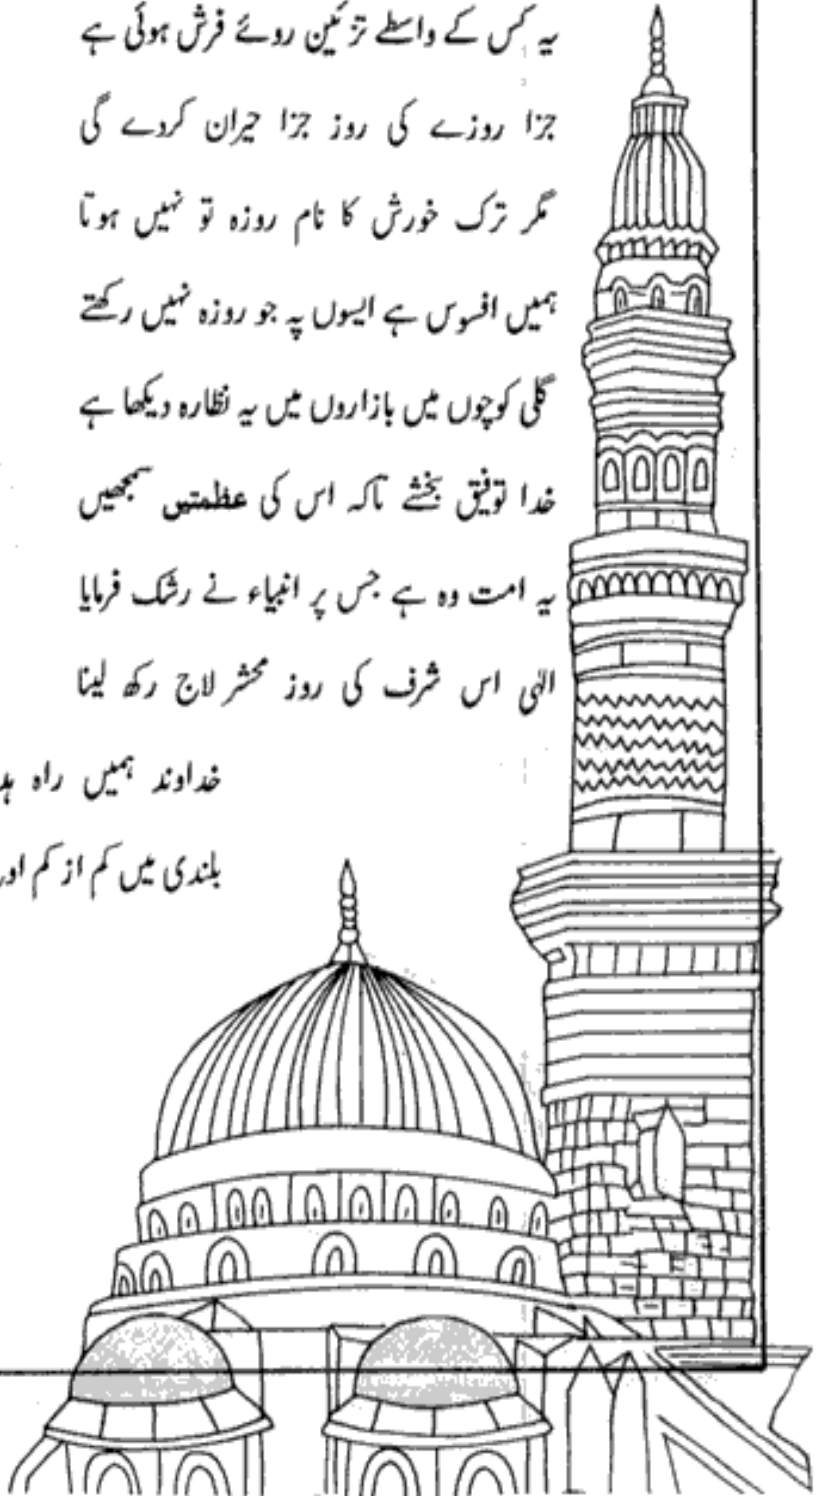 یہ کس کے واسطے تزئین روئے فرش ہوئی ہے
جزا روزے کی روز جزا حیران کردے گی
مگر ترک خورش کا نام روزہ تو نہیں ہوتا
ہمیں افسوس ہے ایسوں پہ جو روزہ نہیں رکھتے
گلی کوچوں میں بازاروں میں یہ نظارہ دیکھا ہے
خدا توفیق بخشے تاکہ اس کی عظمتیں سمجھیں
یہ امت وہ ہے جس پر انبیاء نے رشک فرمایا
الٰہی اس شرف کی روز محشر لاج رکھ لینا
خداوند ہمیں راہ
بلندی میں کم از کم اور